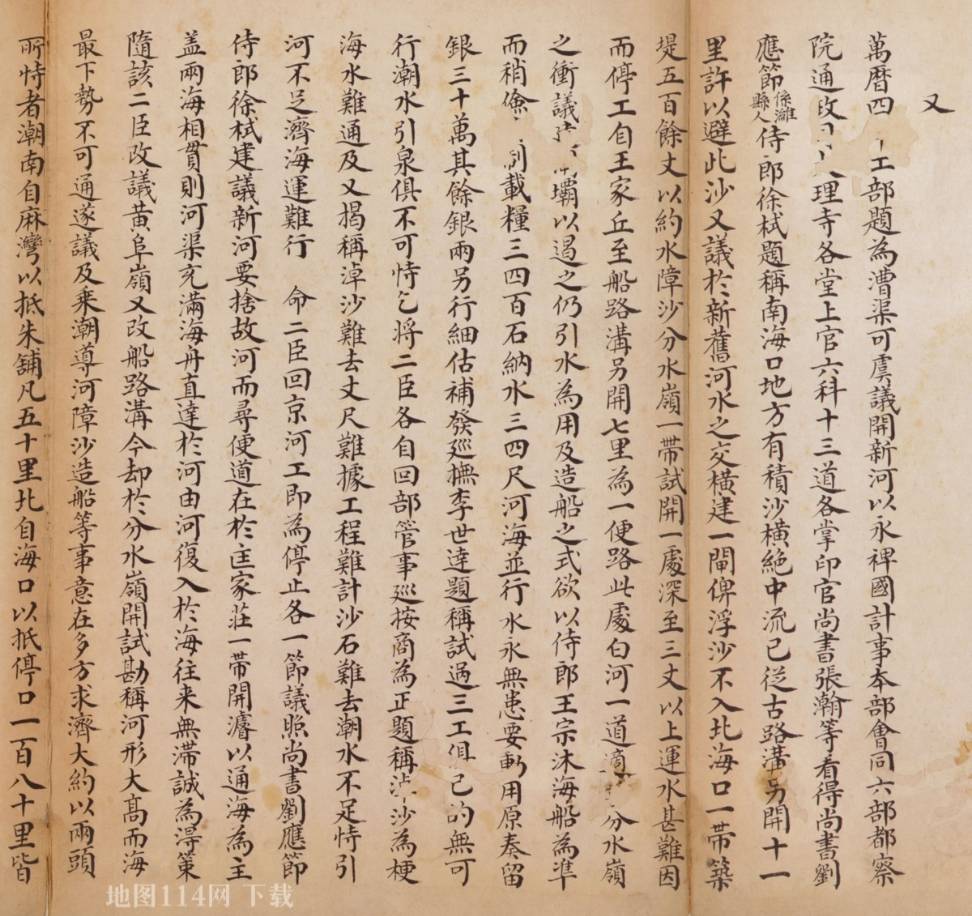 又
萬曆四 工部題為漕渠可虞議開新河以永裨國計事本部會同六部都察
院通政 理寺各堂上官六科十三道各掌印官尚書張瀚等看得尚書劉
應節係濰縣人侍郎徐栻題稱南海口地方有積沙橫絕中流已從古路溝另開十一
里許以避此沙又議於新舊河水之交橫建一閘俾浮沙不入北海口一帶築
堤五百餘丈以約水障沙分水嶺一帶試開一處深至三丈以上運水甚難因
而停工自王家丘至船路溝另開七里為一便路此處白河一道 分水嶺
之衝議 壩以遏之仍引水為用及造船之式欲以侍郎王宗沐海船為準
而稍儉 制載糧三四百石納水三四尺河海並行水永無患要動用原奏留
銀三十萬其餘銀兩另行細估補發巡撫李世達題稱試過三工俱已的無可
行潮水引泉俱不可恃乞將二臣各自回部管事巡按商為正題稱 沙為梗
海水難通及又揭稱淖沙難去丈尺難據工程難計沙石難去潮水不足恃引
河不足濟海運難行 命二臣回京河工即為停止各一節議照尚書劉應節
侍郎徐栻建議新河要捨故河而尋便道在於匡家莊一帶開濬以通海為主
盖兩海相貫則河渠充滿海舟直達於河由河復入於海往来無滯誠為得策
隨該二臣改議黃阜嶺又改船路溝今却於分水嶺開試勘稱河形大高而海
最下勢不可通遂議及乘潮導河障沙造船等事意在多方求濟大約以兩頭
所恃者潮南自麻灣以抵朱舖凡五十里北自海口以抵停口一百八十里皆
地图114网 下载